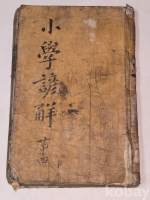 小學諺解
kobay